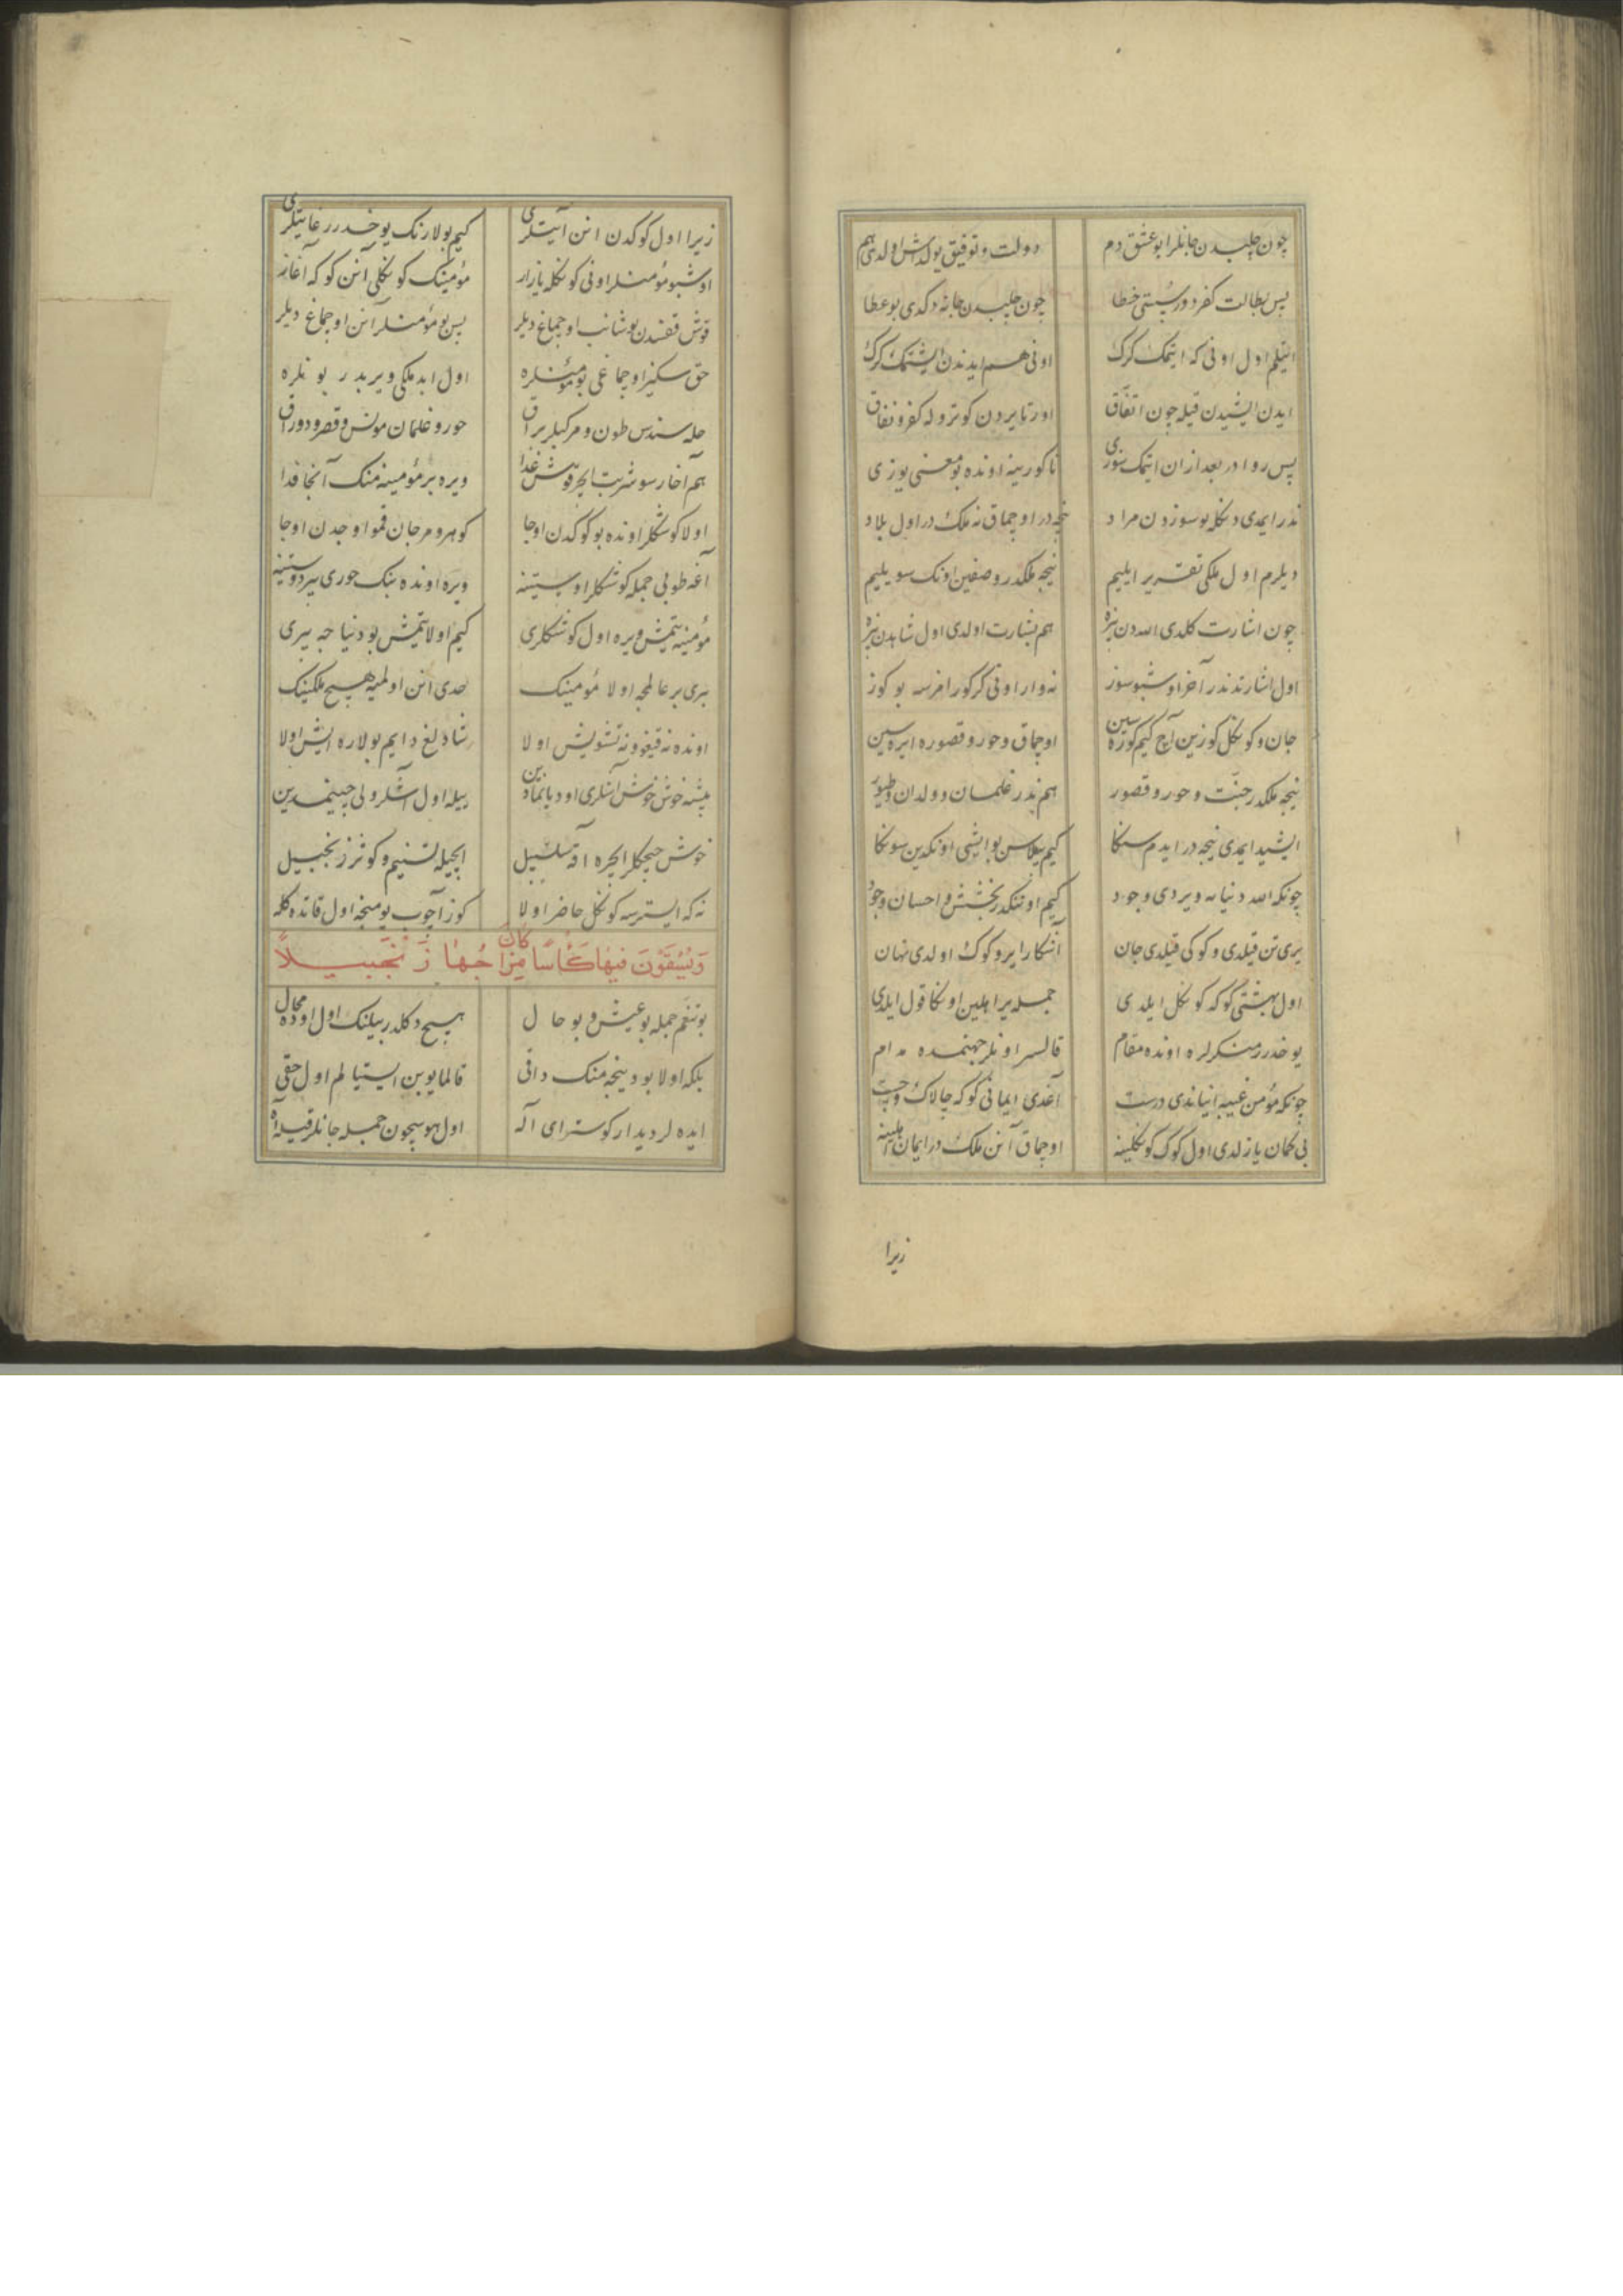 چون چلبدن جانلرا بو عشق دم دولت و توفیق یولداش اولدی هم
پس بطالت کفر دور سستی خطا چون چلبدن جانه دکدی بو عطا
ایتلم اول اونی که ایتمک کرک اونی هم ایدندن ایشتمک کرک
ایدن ایشیدن قیله چون اتفاق اورتا یردن کوتروله کفر و نفاق
پس روا در بعد ازان ایتمک سوزی تا کورینه اونده بو معنی یوزی
ندر ایمدی دنکله بو سوزدن مراد نیجه در اوچماق نه ملک در اول بلاد
دیلرم اول ملکی تقریر ایلیم نیجه ملکدر وصفین اونک سویلیم
چون اشارت کلدی اللهدن بزه هم بشارت اولدی اول شاهدن بزه
اول اشارتدندر آخر اوشبو سوز نه وار اونی کرکورافرسه بو کوز
جان و کونکل کوزین آچ کیم کوره سین اوچماق و حور و قصوره ایره سین
نیجه ملکدر جنّت و حور و قصور هم ندر غلمان و ولدان و طیور
ایشید ایمدی نیجه در ایدم سنکا کیم بیلاسن بو ایشی اونکدین سونکا
چونکه الله دنیایه ویردی وجود کیم اونتکدر بخشش و احسان وجود
یری تن قیلدی و کوکی قیلدی جان آشکارا یر و کوک اولدی نهان
اول بهشتی کوکه کونکل ایلدی جمله یر اهلین اونکا قول ایلدی
یوخدر منکرلره اونده مقام قالسر اونلر جهنمده مدام
چونکه مؤمن غیبه انیاندی درست آغدی ایمانی کوکه چالاک و چست
بی کمان یازلدی اول کوک کونکلینه اوچماق آنن ملک در ایمان اهلینه
زیرا
زیرا اول کوکدن انن آیتلری کیم بولارنک یوخدرر غایتلری
اوشبو مؤمنلر اونی کونکله یازار مؤمینک کونکلی آنن کوکه آغاز
قوش قفسدن بوشانب اوچماغ دیلر پس بو مؤمنلر آنن اوچماغ دیلر
حق سکیز اوچماغی بو مؤمنلره اول ابد ملکی ویریدر بونلره
حله سندس طون و مرکبلر براق حور و غلمان مونس و قصر و دوراق
هم آخار سو شربت ایچر قوش غذا ویره بر مؤمینه منک آنجا فدا
اولا کوشکلر اونده بو کوکدن اوجا کوهر و مرجان قمو اوجدن اوجا
آغه طوبی جمله کوشکلر اوستینه ویره اونده بنک حوری بیر دوستینه
مؤمینه یتمش ویره اول کوشکلری کیم اولا یتمش بو دنیاجه بیری
بیری بر عالمجه اولا مؤمینک حدی انن اولمیه هیچ ملکینک
اونده نه قیغو و نه تشویش اولا شادلغ دایم بولاره ایش اولا
بیشه خوش خوش آشلری اود یانمادین بیله اول آشلر ولی چینمدین
خوش چیچکلر ایچره آقه سلسبیل ایچیله تسنیم و کوثر زنجبیل
نه که ایسترسه کونکل حاضر اولا کوز آچوب یومنجه اول قاتده کله
وَيُسْقَوْنَ فِيهَا كَأْسًا كَانَ مِزَاجُهَا زَنْجَبِيلاً
بو تنعّم جمله بو عیش و بو حال هیچ دکلدر بیلنک اول اوده محال
بلکه اولا بو دینجه منک داقی قالمایوبن ایستیالم اول حقی
ایده لر دیدار کوستر ای اله اول هوسچون جمله جانلر قیله آه